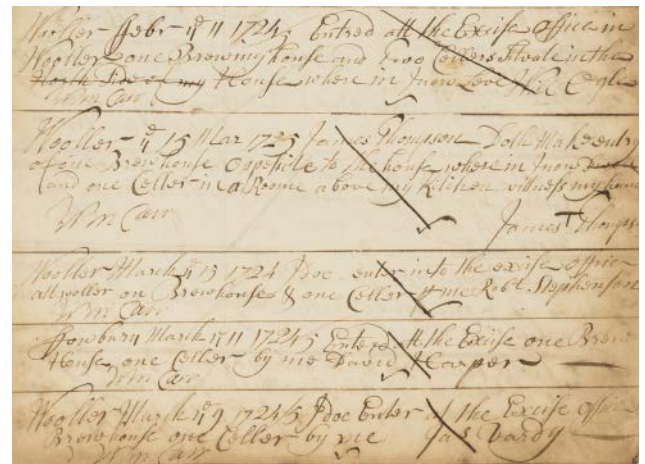 Wooller - ffebr ye 11 1724/5 Entred att the Excise Office in
Wooller one Brewinghouse and Two Cellers situate in the
North Side of my House where in I now Leve Will
Wm Carr
Wooller - ye 15 Mar 1725 James Thompson Doth Make entry
of one Brewhouse Oppesite to the house where in I now
and one Celler in a Roome above my Kitchen witness my han
Wm Carr
James T Thomps
Wooller March ye 15 1724 I doe enter into the excise office
att woller on Brewhouse & one Celler me Robt Stephenson
Wm Carr
ffowbury March ye 11 1724/5 Entered att the Exise one Brew
House one Celler by me David Harper
Wm Carr
Wooller March ye 9 1724/5 I doe Enter at the Excise office
Brewhouse one Celler by me Jas Vardy
Wm Carr